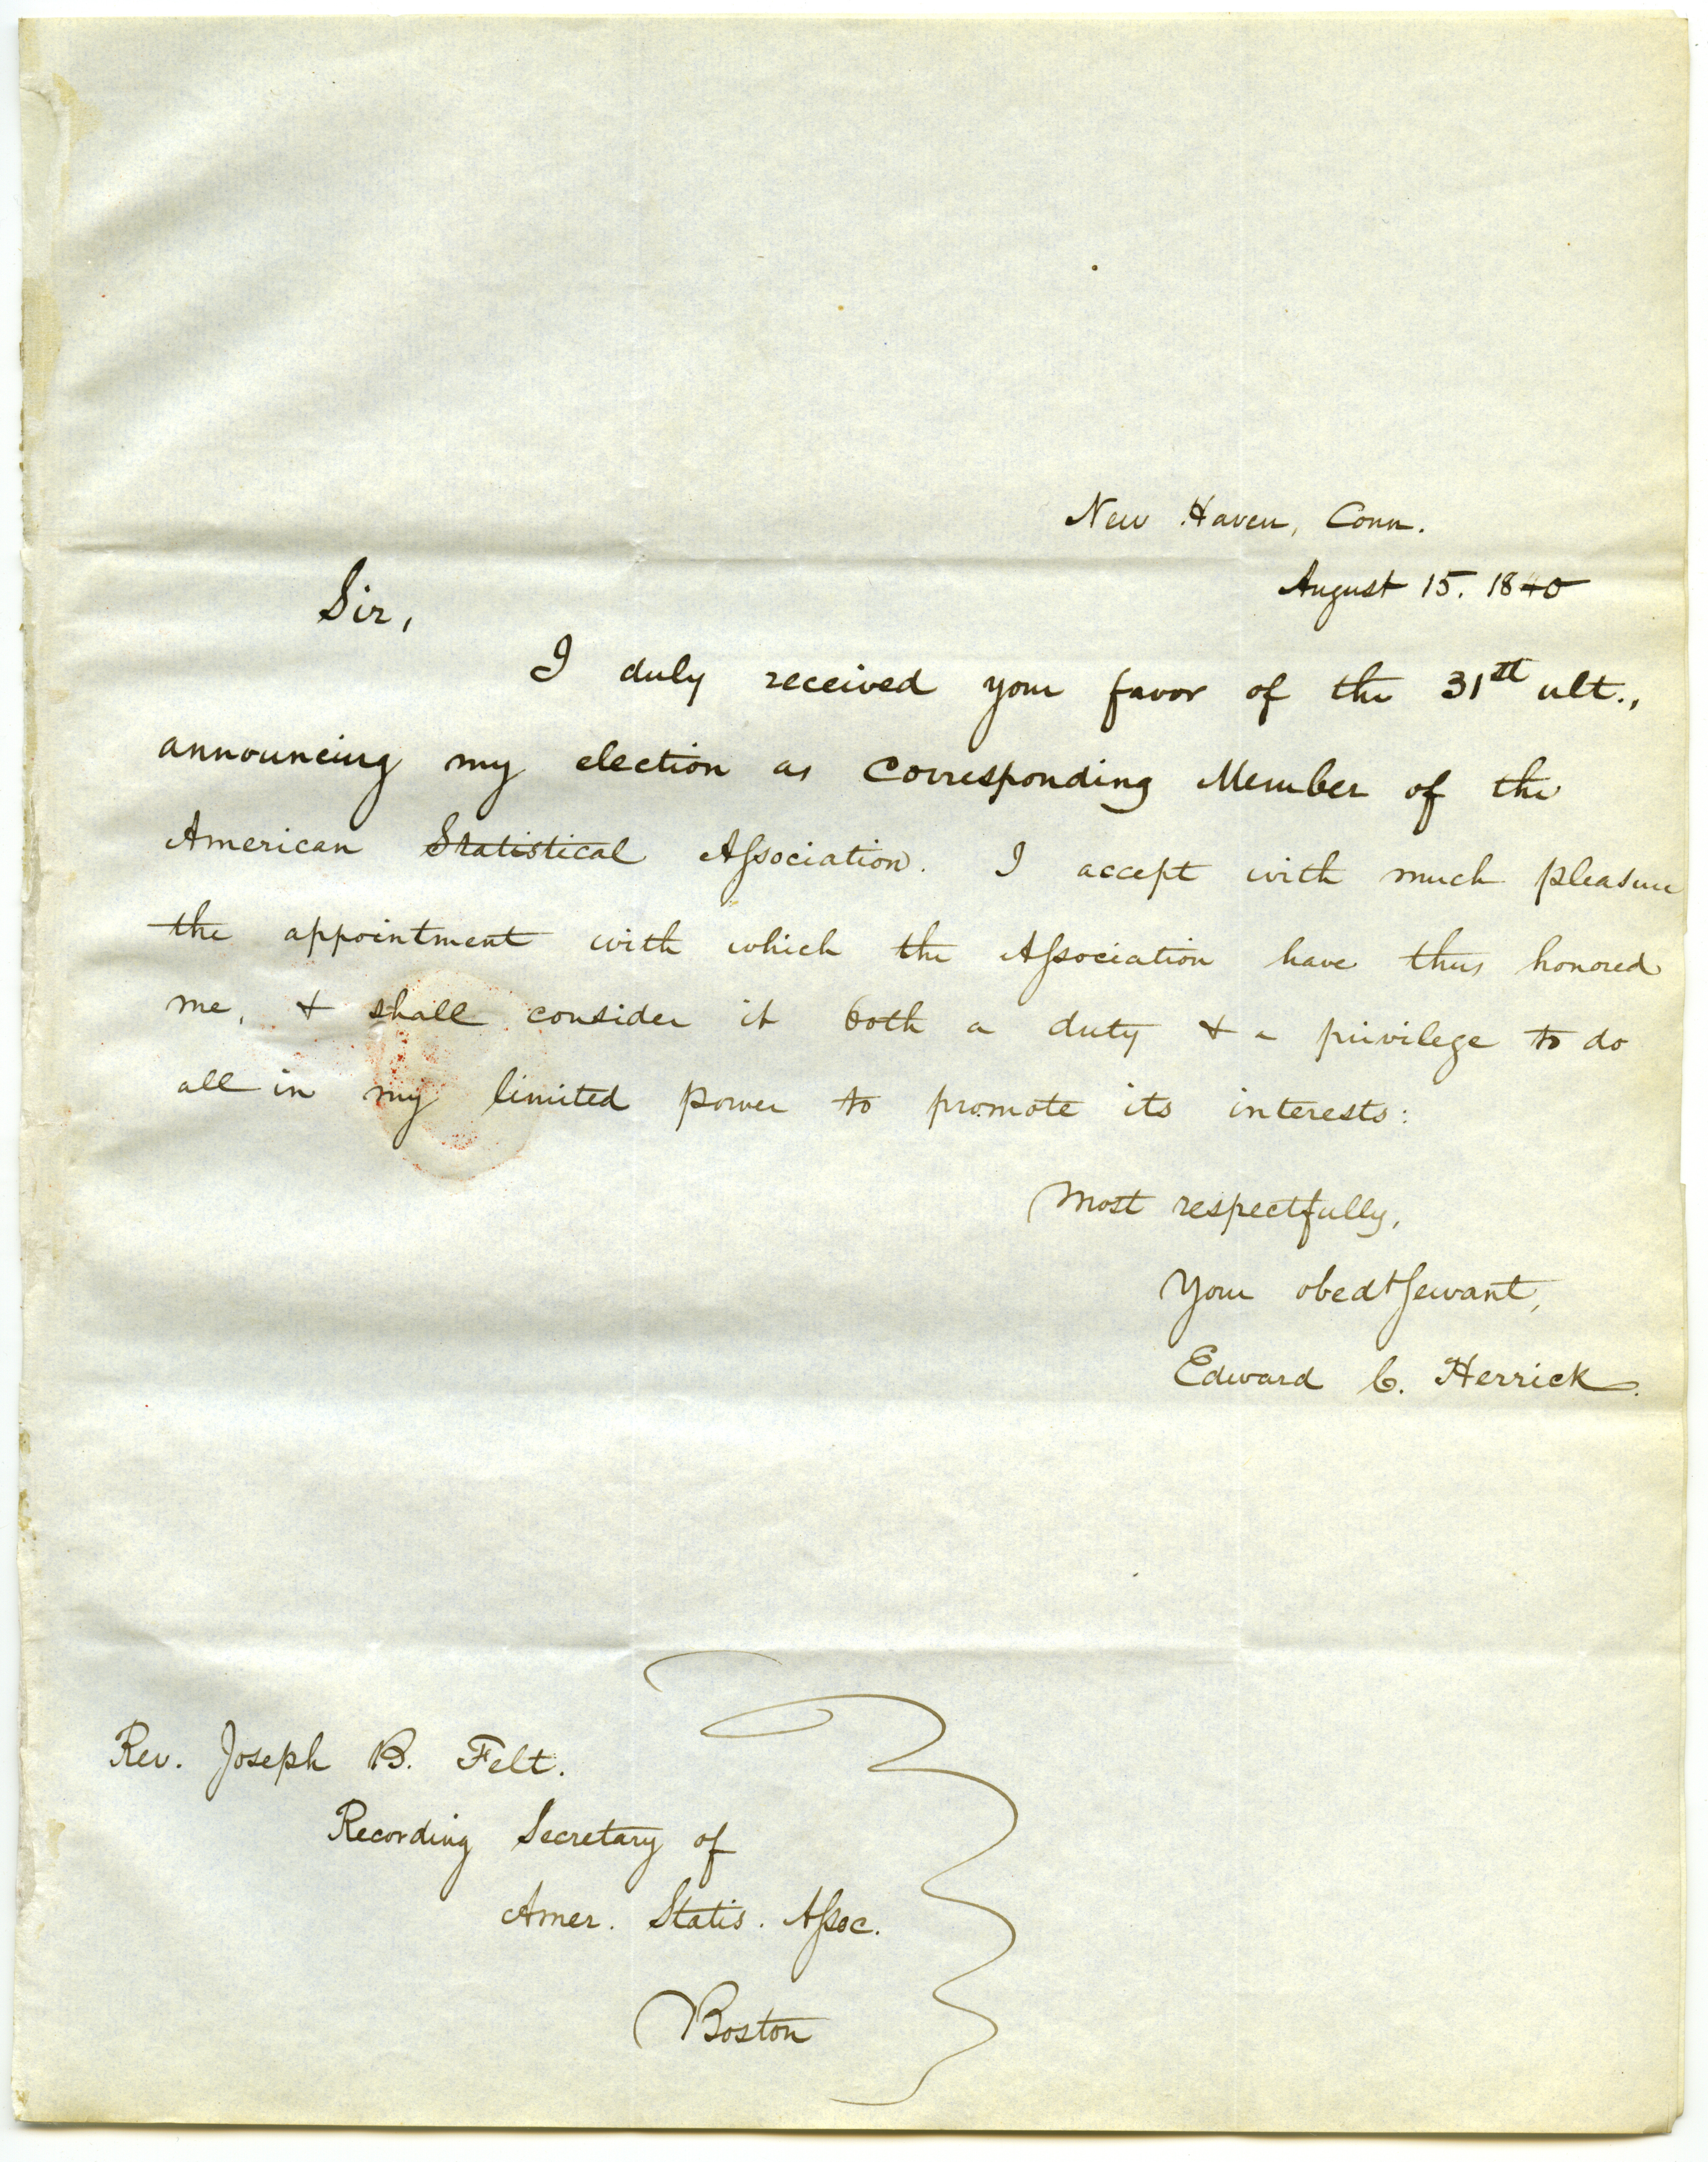 New Haven, Conn.
August 15. 1840
Sir,
I duly received your favor of the 31st ult.,
announcing my election as Corresponding Member of the
American Statistical Aſsociation. I accept with much pleasure
the appointment with which the Aſsociation have thus honored
me, & shall consider it both a duty & a privilege to do
all in my limited power to promote its interests:
Most respectfully,
Your obedt servant,
Edward C. Herrick.
Rev. Joseph B. Felt.
Recording Secretary of
Amer. Statis. Aſsoc.
Boston